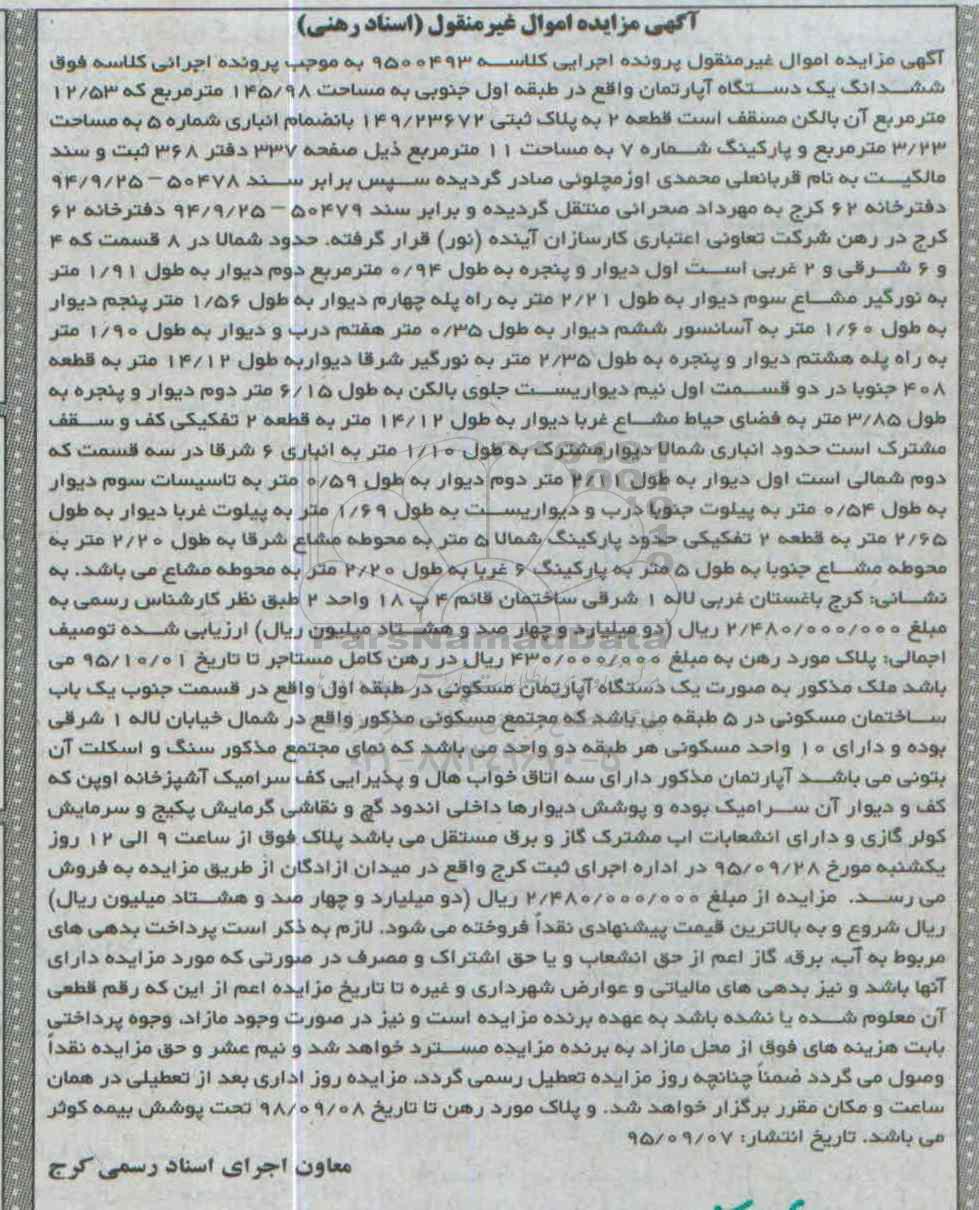 آگهی مزایده اموال غیرمنقول (اسناد رهنی)
آگهی مزایده اموال غیرمنقول پرونده اجرایی کلاسه ۹۵۰۰۴۹۳ به موجب پرونده اجرائی کلاسه فوق
ششدانگ یک دستگاه آپارتمان واقع در طبقه اول جنوبی به مساحت ۱۴۵/۹۸ مترمربع که ۱۲/۵۳
مترمربع آن بالکن مسقف است قطعه ۲ به پلاک ثبتی ۱۴۹/۲۳۶۷۲ بانضمام انباری شماره ۵ به مساحت
۳/۲۳ مترمربع و پارکینگ شماره ۷ به مساحت ۱۱ مترمربع ذیل صفحه ۳۳۷ دفتر ۳۶۸ ثبت و سند
مالکیت به نام قربانعلی محمدی اوزمچلوئی صادر گردیده سپس برابر سند ۵۰۴۷۸ – ۹۴/۹/۲۵
دفترخانه ۶۲ کرج به مهرداد صحرائی منتقل گردیده و برابر سند ۵۰۴۷۹ – ۹۴/۹/۲۵ دفترخانه ۶۲
کرج در رهن شرکت تعاونی اعتباری کارسازان آینده (نور) قرار گرفته. حدود شمالا در ۸ قسمت که ۴
و ۶ شرقی و ۲ غربی است اول دیوار و پنجره به طول ۰/۹۴ مترمربع دوم دیوار به طول ۱/۹۱ متر
به نورگیر مشاع سوم دیوار به طول ۲/۲۱ متر به راه پله چهارم دیوار به طول ۱/۵۶ متر پنجم دیوار
به طول ۱/۶۰ متر به آسانسور ششم دیوار به طول ۰/۳۵ متر هفتم درب و دیوار به طول ۱/۹۰ متر
به راه پله هشتم دیوار و پنجره به طول ۲/۳۵ متر به نورگیر شرقا دیواربه طول ۱۴/۱۲ متر به قطعه
۴۰۸ جنوبا در دو قسمت اول نیم دیواریست جلوی بالکن به طول ۶/۱۵ متر دوم دیوار و پنجره به
طول ۳/۸۵ متر به فضای حیاط مشاع غربا دیوار به طول ۱۴/۱۲ متر به قطعه ۲ تفکیکی کف و سقف
مشترک است حدود انباری شمالا دیوارمشترک به طول ۱/۱۰ متر به انباری ۶ شرقا در سه قسمت که
دوم شمالی است اول دیوار به طول ۲/۱۱ متر دوم دیوار به طول ۰/۵۹ متر به تاسیسات سوم دیوار
به طول ۰/۵۴ متر به پیلوت جنوبا درب و دیواریست به طول ۱/۶۹ متر به پیلوت غربا دیوار به طول
۲/۶۵ متر به قطعه ۲ تفکیکی حدود پارکینگ شمالا ۵ متر به محوطه مشاع شرقا به طول ۲/۲۰ متر به
محوطه مشاع جنوبا به طول ۵ متر به پارکینگ ۶ غربا به طول ۲/۲۰ متر به محوطه مشاع می باشد. به
نشانی: کرج باغستان غربی لاله ۱ شرقی ساختمان قائم ۴ پ ۱۸ واحد ۲ طبق نظر کارشناس رسمی به
مبلغ ۲/۴۸۰/۰۰۰/۰۰۰ ریال (دو میلیارد و چهار صد و هشتاد میلیون ریال) ارزیابی شده توصیف
اجمالی: پلاک مورد رهن به مبلغ ۴۳۰/۰۰۰/۰۰۰ ریال در رهن کامل مستاجر تا تاریخ ۹۵/۱۰/۰۱ می
باشد ملک مذکور به صورت یک دستگاه آپارتمان مسکونی در طبقه اول واقع در قسمت جنوب یک باب
ساختمان مسکونی در ۵ طبقه می باشد که مجتمع مسکونی مذکور واقع در شمال خیابان لاله ۱ شرقی
بوده و دارای ۱۰ واحد مسکونی هر طبقه دو واحد می باشد که نمای مجتمع مذکور سنگ و اسکلت آن
بتونی می باشد آپارتمان مذکور دارای سه اتاق خواب هال و پذیرایی کف سرامیک آشپزخانه اوپن که
کف و دیوار آن سرامیک بوده و پوشش دیوارها داخلی اندود گچ و نقاشی گرمایش پکیج و سرمایش
کولر گازی و دارای انشعابات اب مشترک گاز و برق مستقل می باشد پلاک فوق از ساعت ۹ الی ۱۲ روز
یکشنبه مورخ ۹۵/۰۹/۲۸ در اداره اجرای ثبت کرج واقع در میدان ازادگان از طریق مزایده به فروش
می رسد. مزایده از مبلغ ۲/۴۸۰/۰۰۰/۰۰۰ ریال (دو میلیارد و چهار صد و هشتاد میلیون ریال)
ریال شروع و به بالاترین قیمت پیشنهادی نقداً فروخته می شود. لازم به ذکر است پرداخت بدهی های
مربوط به آب، برق، گاز اعم از حق انشعاب و یا حق اشتراک و مصرف در صورتی که مورد مزایده دارای
آنها باشد و نیز بدهی های مالیاتی و عوارض شهرداری و غیره تا تاریخ مزایده اعم از این که رقم قطعی
آن معلوم شده یا نشده باشد به عهده برنده مزایده است و نیز در صورت وجود مازاد، وجوه پرداختی
بابت هزینه های فوق از محل مازاد به برنده مزایده مسترد خواهد شد و نیم عشر و حق مزایده نقداً
وصول می گردد ضمناً چنانچه روز مزایده تعطیل رسمی گردد، مزایده روز اداری بعد از تعطیلی در همان
ساعت و مکان مقرر برگزار خواهد شد. و پلاک مورد رهن تا تاریخ ۹۸/۰۹/۰۸ تحت پوشش بیمه کوثر
می باشد. تاریخ انتشار: ۹۵/۰۹/۰۷
معاون اجرای اسناد رسمی کرج
ParsNamadData